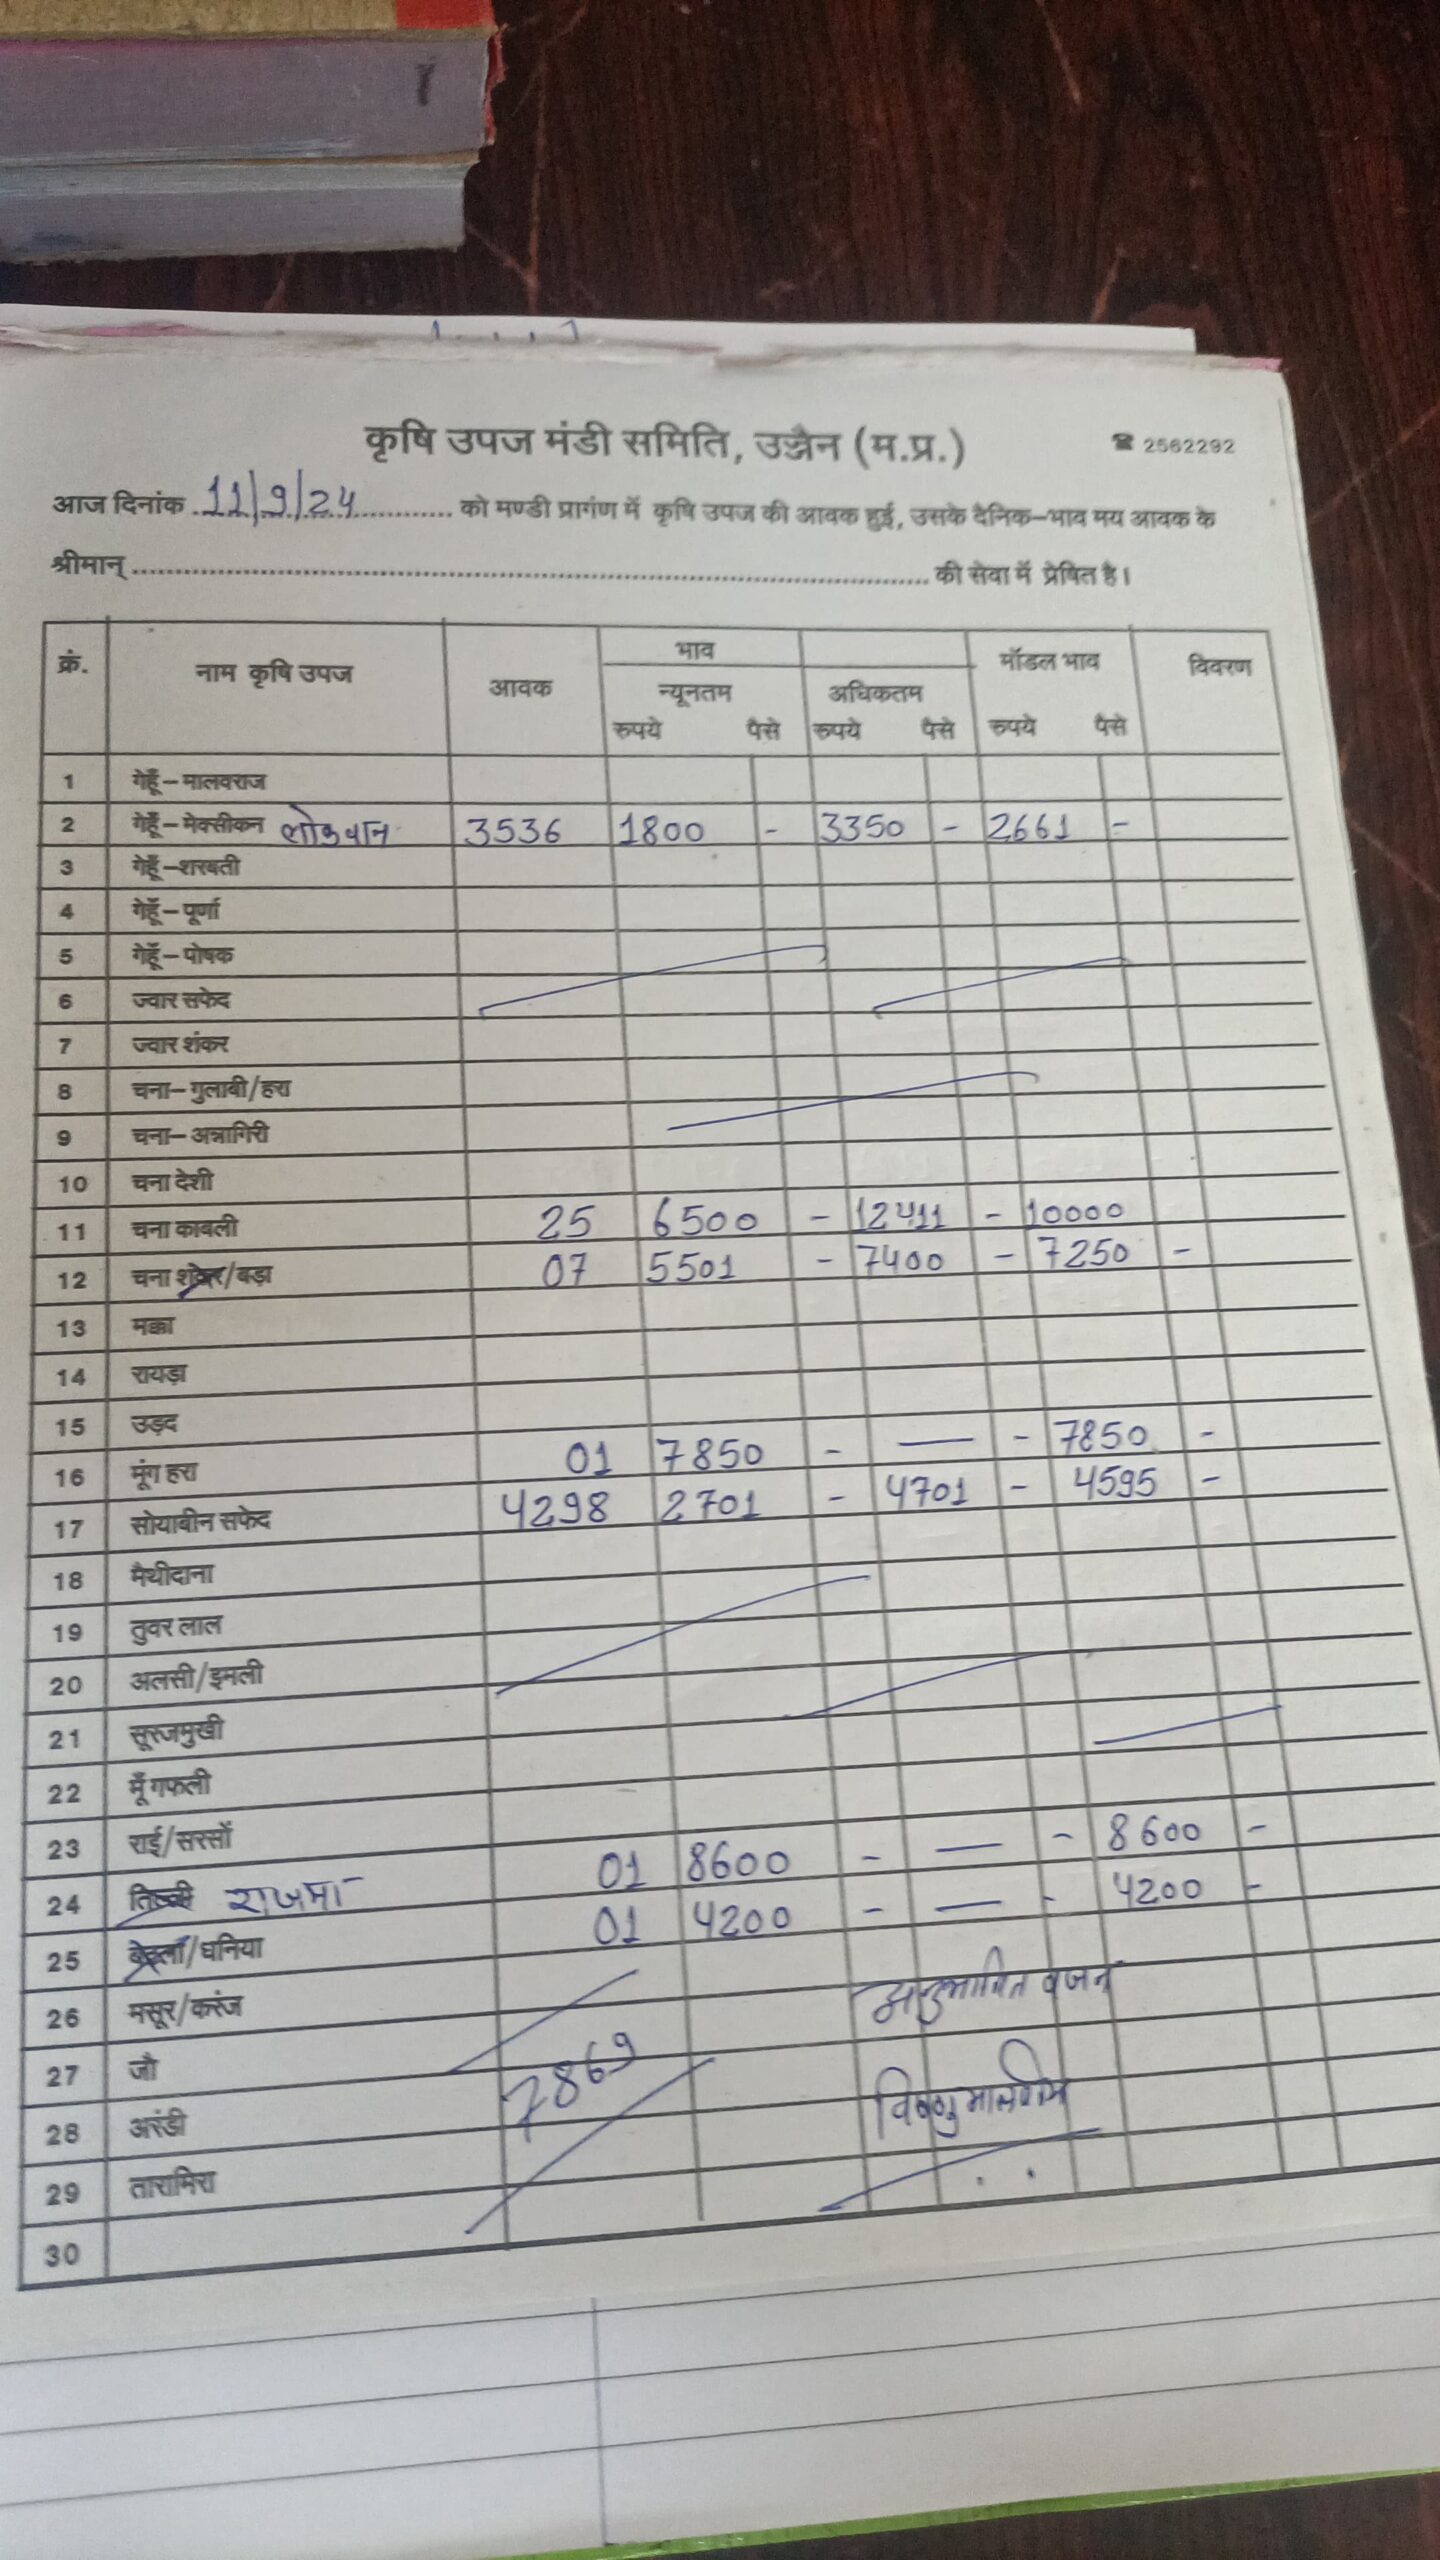 कृषि उपज मंडी समिति, उज्जैन (म.प्र.) ☎ 2562292
आज दिनांक 11/9/24 को मण्डी प्रागंण में कृषि उपज की आवक हुई, उसके दैनिक–भाव मय आवक के
श्रीमान् की सेवा में प्रेषित है।
क्रं. नाम कृषि उपज आवक भाव मॉडल भाव विवरण
न्यूनतम अधिकतम
रुपये पैसे रुपये पैसे रुपये पैसे
1 गेहूँ–मालवराज
2 गेहूँ–मेक्सीकन लोकवान 3536 1800 - 3350 - 2661 -
3 गेहूँ–शरबती
4 गेहूँ–पूर्णा
5 गेहूँ–पोषक
6 ज्वार सफेद
7 ज्वार शंकर
8 चना–गुलाबी/हरा
9 चना–अन्नागिरी
10 चना देशी
11 चना काबली 25 6500 - 12411 - 10000
12 चना शंकर/बड़ा 07 5501 - 7400 - 7250 -
13 मक्का
14 रायड़ा
15 उड़द
16 मूंग हरा 01 7850 - — - 7850 -
17 सोयाबीन सफेद 4298 2701 - 4701 - 4595 -
18 मैथीदाना
19 तुवर लाल
20 अलसी/इमली
21 सूरजमुखी
22 मूँगफली
23 राई/सरसों
24 तिल्ली राजमा 01 8600 - — - 8600 -
25 /धनिया 01 4200 - — - 4200 -
26 मसूर/करंज
27 जौ
28 अरंडी
29 तारामिरा
30
7869
अनुमानित वजन
विष्णु मालवीय